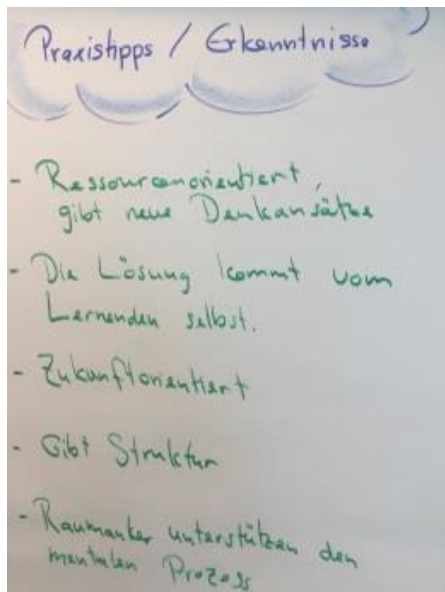 Praxistipps / Erkenntnisse
- Ressourcenorientiert,
gibt neue Denkansätze
- Die Lösung kommt vom
Lernenden selbst.
- Zukunftorientiert
- Gibt Struktur
- Raumanker unterstützen den
mentalen Prozess